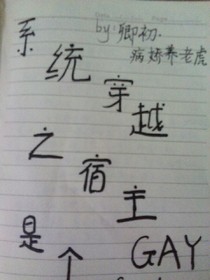 by:卿初.
病娇养老虎
系统穿越
之宿主
是个GAY